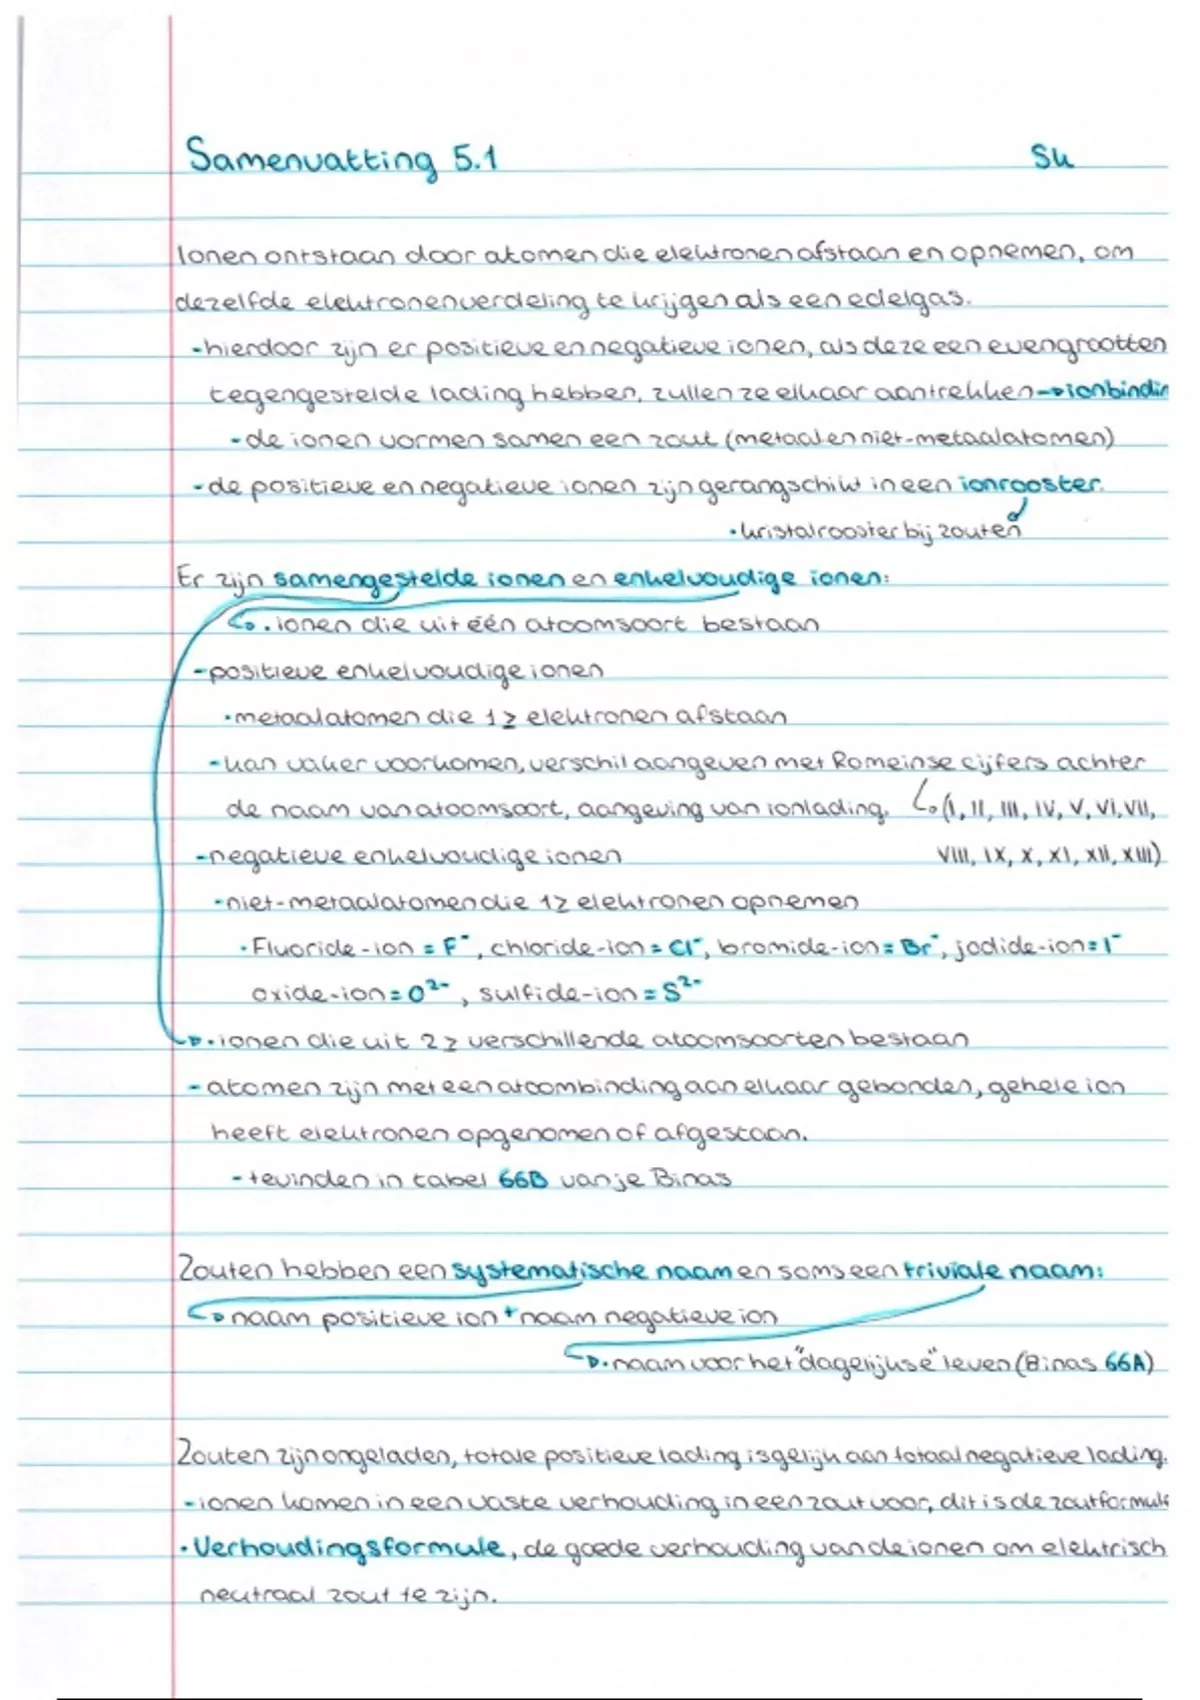 Samenvatting 5.1 Sk
Ionen ontstaan door atomen die elektronen afstaan en opnemen, om
dezelfde elektronenverdeling te krijgen als een edelgas.
-hierdoor zijn er positieve en negatieve ionen, als deze een evengrootten
tegengestelde lading hebben, zullen ze elkaar aantrekken→ionbindin
-de ionen vormen samen een zout (metaal en niet-metaalatomen)
-de positieve en negatieve ionen zijn gerangschikt in een ionrooster.
•kristalrooster bij zouten
Er zijn samengestelde ionen en enkelvoudige ionen:
↳•ionen die uit één atoomsoort bestaan
-positieve enkelvoudige ionen
•metaalatomen die 1≥ elektronen afstaan
-kan vaker voorkomen, verschil aangeven met Romeinse cijfers achter
de naam van atoomsoort, aangeving van ionlading. ↳(I, II, III, IV, V, VI, VII,
VIII, IX, X, XI, XII, XIII)
-negatieve enkelvoudige ionen
•niet-metaalatomen die 1≥ elektronen opnemen
•Fluoride-ion = F⁻, chloride-ion = Cl⁻, bromide-ion = Br⁻, jodide-ion = I⁻
oxide-ion = O²⁻, sulfide-ion = S²⁻
↳•ionen die uit 2≥ verschillende atoomsoorten bestaan
-atomen zijn met een atoombinding aan elkaar gebonden, gehele ion
heeft elektronen opgenomen of afgestaan.
-te vinden in tabel 66B van je Binas
Zouten hebben een systematische naam en soms een triviale naam:
↳naam positieve ion + naam negatieve ion
↳•naam voor het "dagelijkse" leven (Binas 66A)
Zouten zijn ongeladen, totale positieve lading is gelijk aan totaal negatieve lading.
-ionen komen in een vaste verhouding in een zout voor, dit is de zoutformule
•Verhoudingsformule, de goede verhouding van de ionen om elektrisch
neutraal zout te zijn.